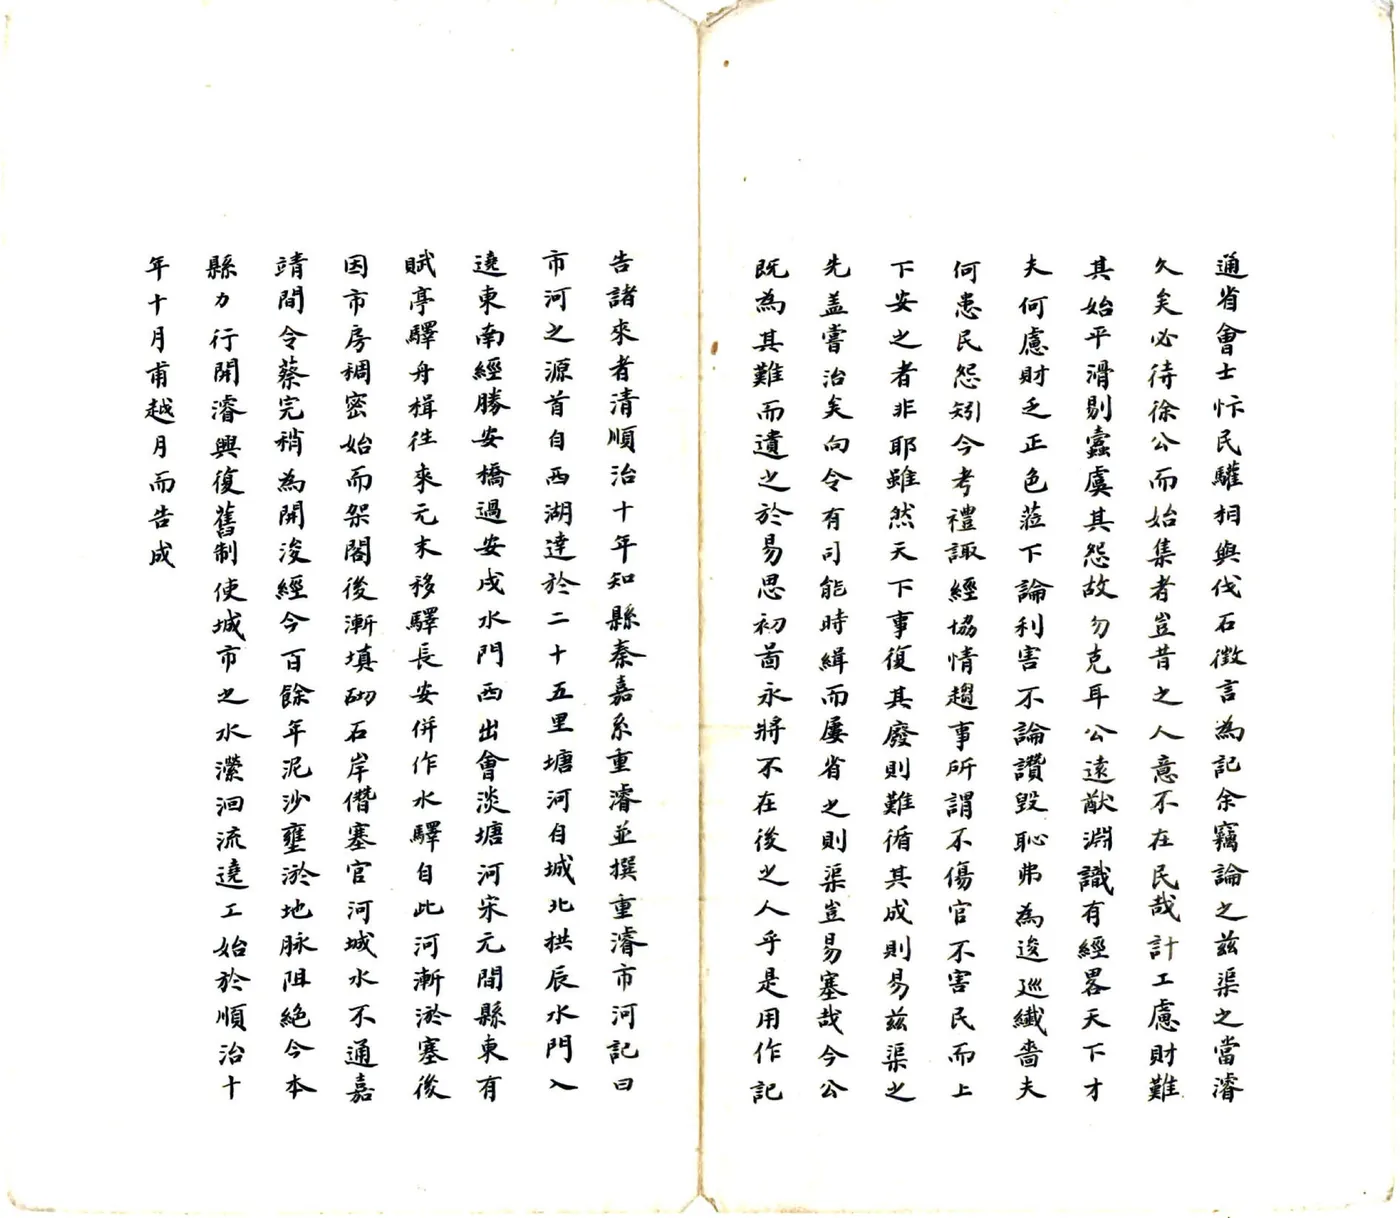 通省會士忭民驩相與伐石徵言為記余竊論之茲渠之當濬
久矣必待徐公而始集者豈昔之人意不在民哉計工慮財難
其始平滑剔蠹虞其怨故勿克耳公遠猷淵識有經畧天下才
夫何慮財乏正色蒞下論利害不論讚毀恥弗為逡巡纖嗇夫
何患民怨矧今考禮諏經協情趨事所謂不傷官不害民而上
下安之者非耶雖然天下事復其廢則難循其成則易茲渠之
先盖嘗治矣向令有司能時緝而屢省之則渠豈易塞哉今公
既為其難而遺之於易思初啚永將不在後之人乎是用作記
告諸來者清順治十年知縣秦嘉系重濬並撰重濬市河記曰
市河之源首自西湖達於二十五里塘河自城北拱辰水門入
遶東南經勝安橋過安戍水門西出會淡塘河宋元間縣東有
賦亭驛舟楫徃來元末移驛長安併作水驛自此河漸淤塞後
因市房稠密始而架閣後漸填砌石岸僭塞官河城水不通嘉
靖間令蔡完稍為開浚經今百餘年泥沙壅淤地脉阻絕今本
縣力行開濬興復舊制使城市之水瀠洄流遶工始於順治十
年十月甫越月而告成